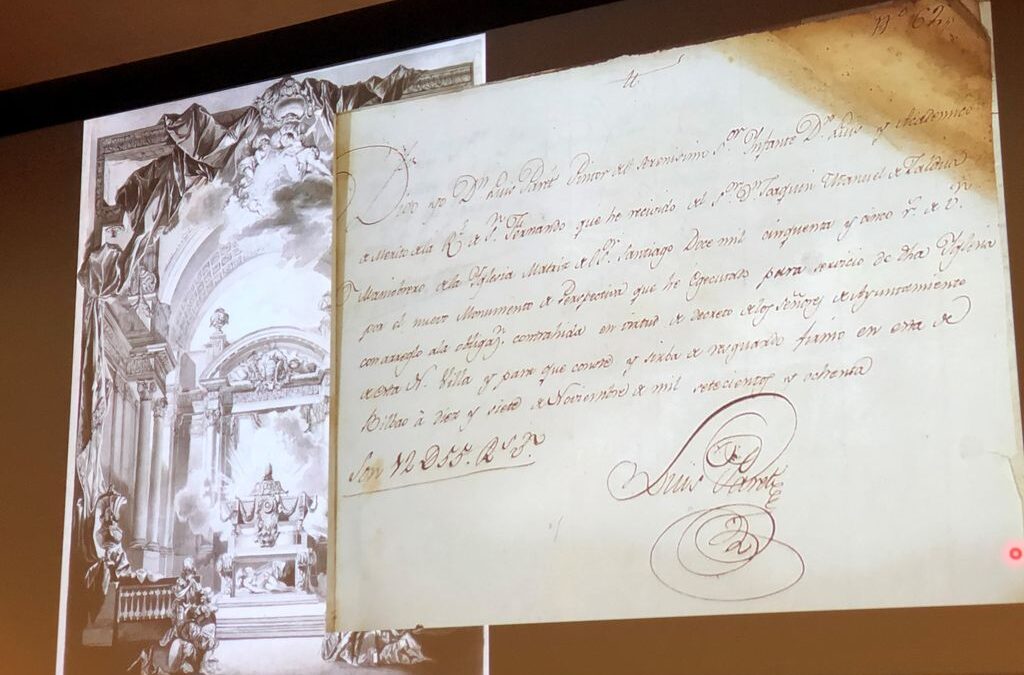 Nº 62
Digo yo Dn Luis Paret Pintor del Serenisim Sor Infante Dn Luis y Academico
de Merito de la Rl de Sn Fernando que he recivido del Sor Dn Joaquin Manuel de Zaldua
Maniobrero de la Yglesia Matriz de Santiago Doce mil cinquenta y cinco rs de vn
por el nuevo Monumento de Perspectiva que he Egecutado para servicio de dha Yglesia
con arreglo a la obligazn contrahida en virtud de decreto de los señores de Ayuntamiento
de esta N. Villa y para que conste y sirba de resguardo firmo en esta de
Bilbao à diez y siete de Noviembre de mil setecientos y ochenta
Son 12 D55. Rs
Luis Paret